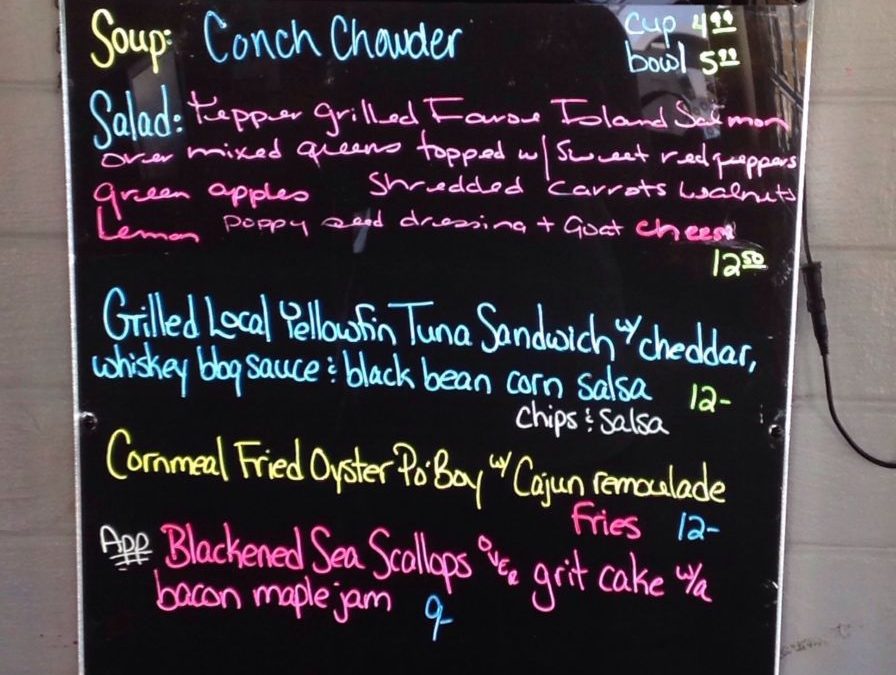 Soup: Conch Chowder cup 4.99
bowl 5.99
Salad: Pepper grilled Faroe Island Salmon
over mixed greens topped w/ Sweet red peppers
green apples Shredded Carrots walnuts
Lemon poppy seed dressing + Goat cheese
12.50
Grilled Local Yellowfin Tuna Sandwich w/ cheddar,
whiskey bbq sauce & black bean corn salsa 12-
chips & salsa
Cornmeal Fried Oyster Po'Boy w/ Cajun remoulade
Fries 12-
App Blackened Sea Scallops over grit cake w/a
bacon maple jam 9-